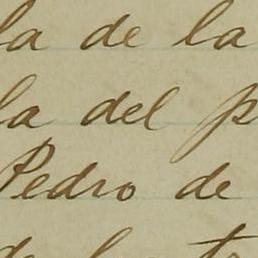 la de la
la del p
Pedro de
de la